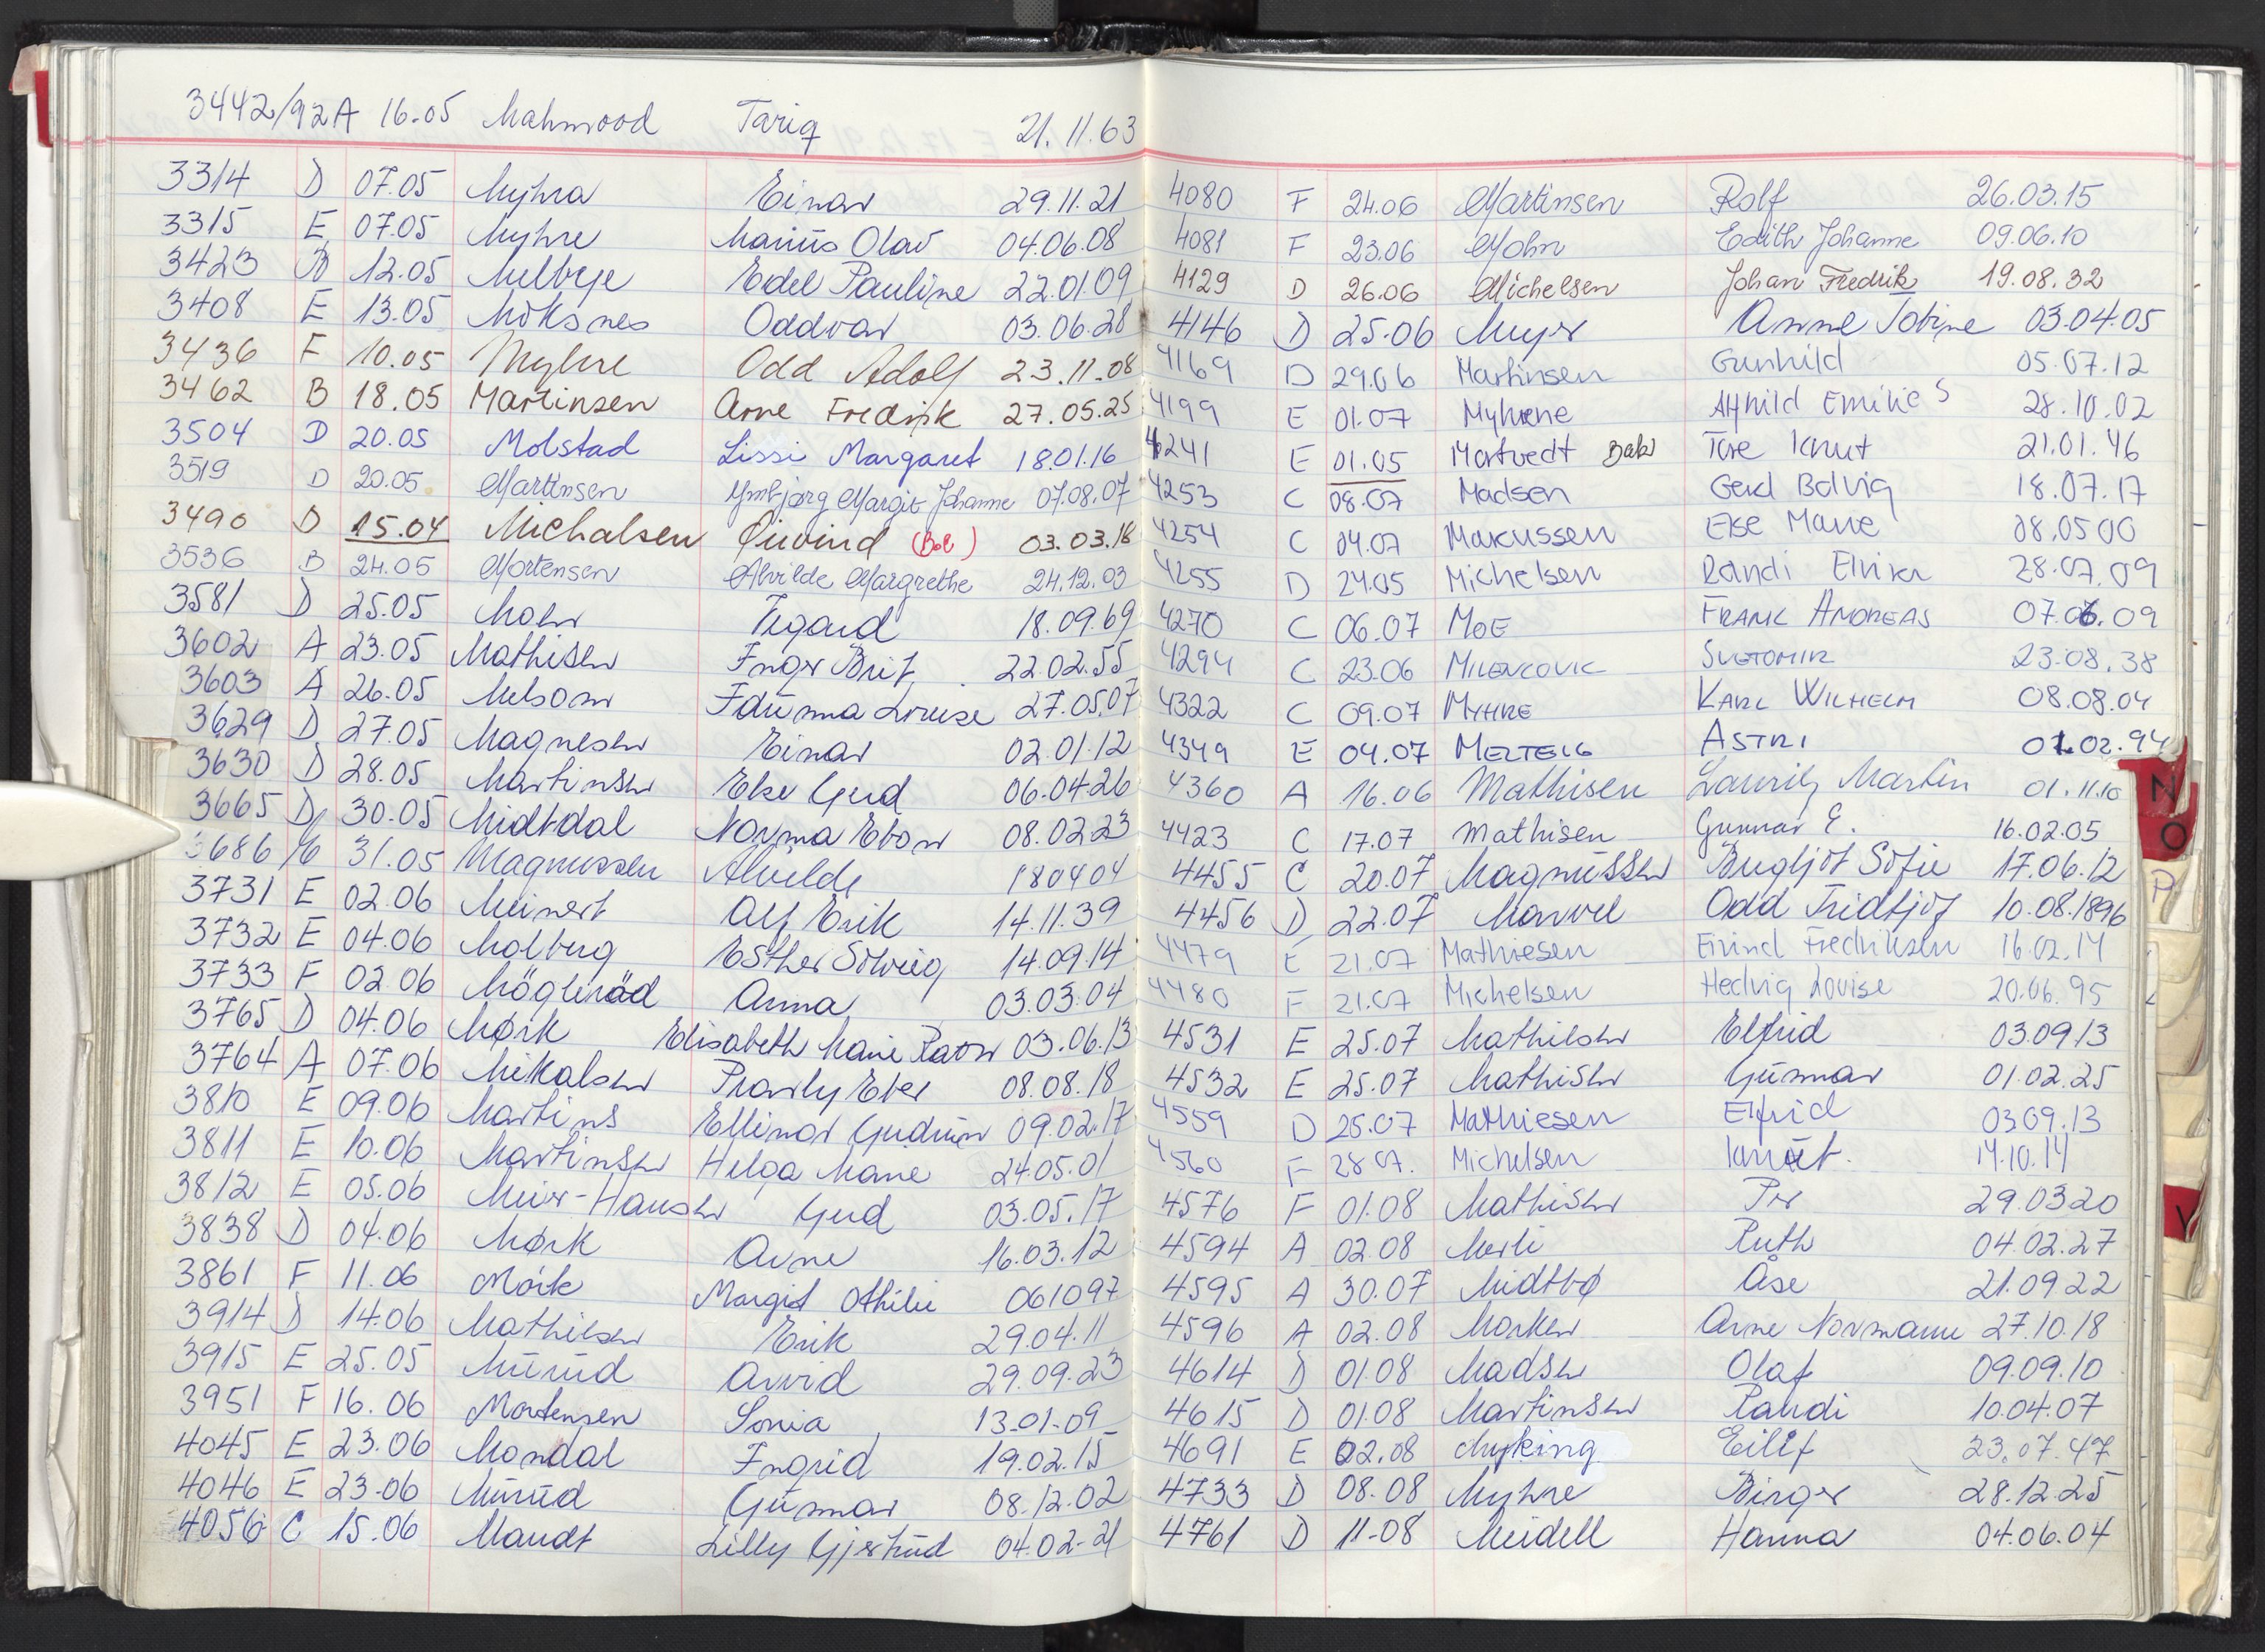 3442/92 A 16.05 Mahmood Tariq 21.11.63
3314 D 07.05 Myhra Einar 29.11.21
3315 E 07.05 Myhre Marius Olav 04.06.08
3423 B 12.05 Melbye Edel Pauline 22.01.09
3408 E 13.05 Moksnes Oddvar 03.06.28
3436 F 10.05 Myhre Odd Adolf 23.11.08
3462 B 18.05 Martinsen Arne Fredrik 27.05.25
3504 D 20.05 Molstad Lissi Margaret 18.01.16
3519 D 20.05 Martinsen Ymbjørg Margit Johanne 07.08.07
3490 D 15.04 Michalsen Øivind 03.03.18
3536 B 24.05 Mortensen Alvilde Margrethe 24.12.03
3581 D 25.05 Mohr Vegard 18.09.69
3602 A 23.05 Mathisen Inger Brit 22.02.55
3603 A 26.05 Melsom Louise 27.05.07
3629 D 27.05 Magnesen Einar 02.01.12
3630 D 28.05 Martinsen Else Gerd 06.04.26
3665 D 30.05 Midtdal Norma 08.02.23
686 31.05 Magnussen Alvilde 180404
3731 E 02.06 Meinert Alf Erik 14.11.39
3732 E 04.06 Molberg Esther Solveig 14.09.14
3733 F 02.06 Anna 03.03.04
3765 D 04.06 Mørk Elisabeth Marie 03.06.13
3764 A 07.06 Mikalsen 08.08.18
3810 E 09.06 Martins Ellinor Gudrun 09.02.17
3811 E 10.06 Martinsen Helga Marie 24.05.01
3812 E 05.06 Meier-Hansen Gerd 03.05.17
3838 D 04.06 Mørk Arne 16.03.12
3861 F 11.06 Mörk Margit Othilie 061097
3914 D 14.06 Mathilsen Erik 29.04.11
3915 E 25.05 Murud Arvid 29.09.23
3951 F 16.06 Mortensen Sonia 13.01.09
4045 E 23.06 Mondal Ingrid 19.02.15
4046 E 23.06 Murud Gunnar 08.12.02
4056 C 15.06 Mandt Lilly Gjertrud 04.02-21
4080 F 24.06 Martinsen Rolf 26.03.15
4081 F 23.06 Mohn Edith Johanne 09.06.10
4129 D 26.06 Michelsen Johan Fredrik 19.08.32
4146 D 25.06 Meyer Anne Tobine 03.04.05
4169 D 29.06 Martinsen Gunhild 05.07.12
4199 E 01.07 Myhrene 28.10.02
4241 E 01.05 Mortvedt Bak Tore Knut 21.01.46
4253 C 08.07 Madsen Gerd Bolvig 18.07.17
4254 C 04.07 Marcussen Else Marie 08.05 00
4255 D 24.05 Michelsen Randi Elvira 28.07.09
4270 C 06.07 Moe Frank Andreas 07.06.09
4294 C 23.06 Milenkovic Svetomir 23.08.38
4322 C 09.07 Myhre Karl Wilhelm 08.08.04
4349 E 04.07 Melteig Astri 01.02.94
4360 A 16.06 Mathisen Lauritz Martin 01.11.10
4423 C 17.07 Mathisen Gunnar E. 16.02.05
4455 C 20.07 Magnussen Bergljot Sofie 17.06.12
4456 D 22.07 Odd Fridtjof 10.08.1896
4479 E 21.07 Mathiesen Eivind Fredriksen 16.02.14
4480 F 21.07 Michelsen Hedvig Lovise 20.06.95
4531 E 25.07 Mathilsen Elfrid 03.09.13
4532 E 25.07 Mathisen Gunnar 01.02.25
4559 D 25.07 Mathiesen Elfrid 03 09.13
4560 F 28.07. Michelsen Knut. 14.10.14
4576 F 01.08 Mathisen Per 29.03 20
4594 A 02.08 Merli Ruth 04.02.27
4595 A 30.07 Midtbø Åse 21.09 22
4596 A 02.08 Morken Arne Normann 27.10.18
4614 D 01.08 Madsen Olaf 09.09.10
4615 D 01.08 Martinsen Randi 10.04.07
4691 E 02.08 Myking Eilif 23.07.47
4733 D 08.08 Myhre Birger 28.12.25
4761 D 11-08 Meidell Hanna 04.06.04
N
O
P